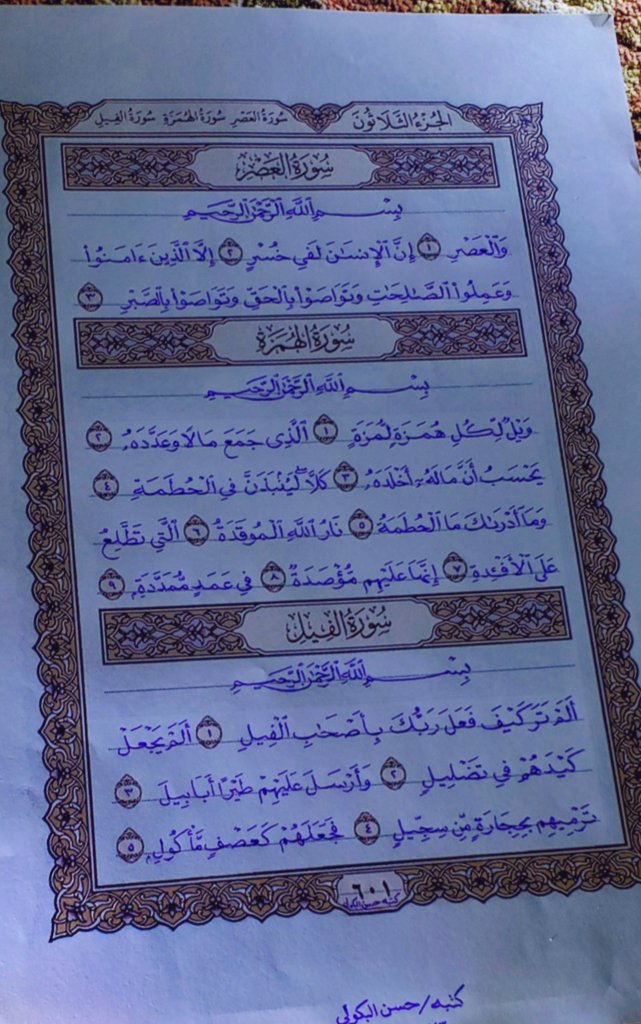 الجُزْءُ الثَّلَاثُونَ سُورَةُ العَصْرِ سُورَةُ الهُمَزَةِ سُورَةُ الفِيلِ
سُورَةُ العَصْرِ
بِسْمِ اللَّهِ الرَّحْمَٰنِ الرَّحِيمِ
وَالْعَصْرِ ١ إِنَّ الْإِنسَٰنَ لَفِي خُسْرٍ ٢ إِلَّا الَّذِينَ ءَامَنُوا
وَعَمِلُوا الصَّٰلِحَٰتِ وَتَوَاصَوْا بِالْحَقِّ وَتَوَاصَوْا بِالصَّبْرِ ٣
سُورَةُ الهُمَزَةِ
بِسْمِ اللَّهِ الرَّحْمَٰنِ الرَّحِيمِ
وَيْلٌ لِّكُلِّ هُمَزَةٍ لُّمَزَةٍ ١ الَّذِي جَمَعَ مَالًا وَعَدَّدَهُۥ ٢
يَحْسَبُ أَنَّ مَالَهُۥٓ أَخْلَدَهُۥ ٣ كَلَّا ۖ لَيُنۢبَذَنَّ فِي الْحُطَمَةِ ٤
وَمَا أَدْرَىٰكَ مَا الْحُطَمَةُ ٥ نَارُ اللَّهِ الْمُوقَدَةُ ٦ الَّتِي تَطَّلِعُ
عَلَى الْأَفْـِٔدَةِ ٧ إِنَّهَا عَلَيْهِم مُّؤْصَدَةٌ ٨ فِي عَمَدٍ مُّمَدَّدَةٍۭ ٩
سُورَةُ الفِيلِ
بِسْمِ اللَّهِ الرَّحْمَٰنِ الرَّحِيمِ
أَلَمْ تَرَ كَيْفَ فَعَلَ رَبُّكَ بِأَصْحَٰبِ الْفِيلِ ١ أَلَمْ يَجْعَلْ
كَيْدَهُمْ فِي تَضْلِيلٍ ٢ وَأَرْسَلَ عَلَيْهِمْ طَيْرًا أَبَابِيلَ ٣
تَرْمِيهِم بِحِجَارَةٍ مِّن سِجِّيلٍ ٤ فَجَعَلَهُمْ كَعَصْفٍ مَّأْكُولٍۭ ٥
٦٠١
كتبه حسن البكولي
كتبه / حسن البكولي